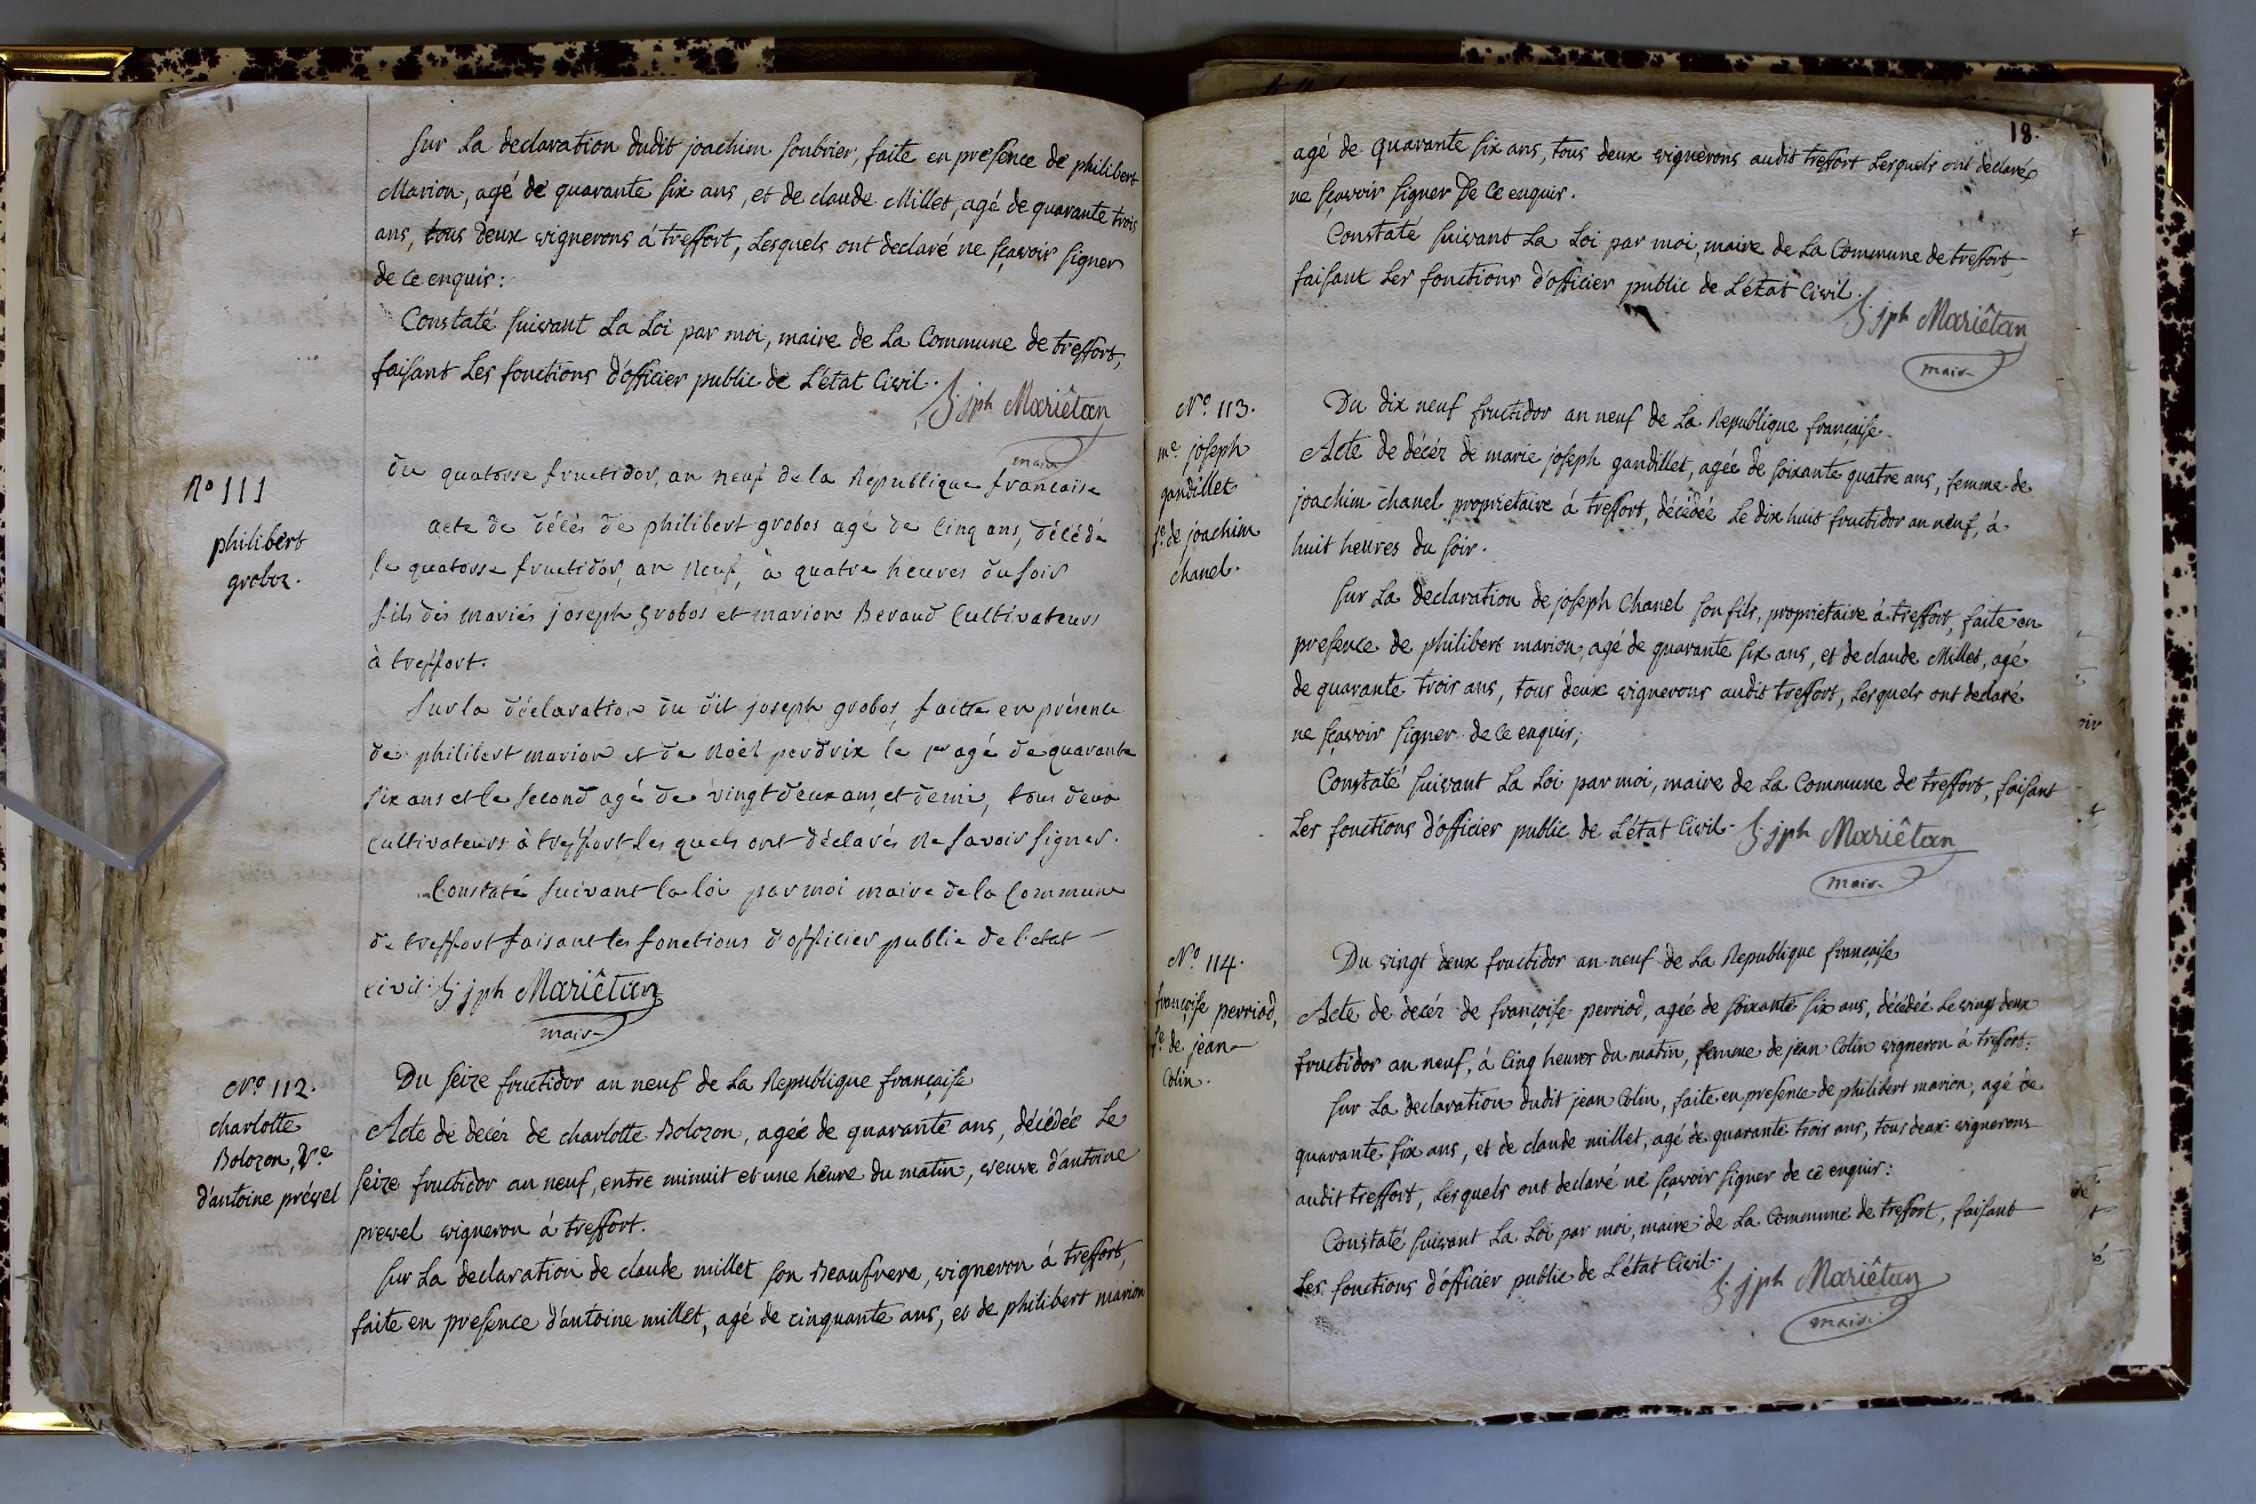 Sur La declaration dudit joachim Soubrier, faite en presence de philibert
Marion, agé de quarante six ans, et de claude Millet, agé de quarante trois
ans, tous deux vignerons á treffort, Lesquels ont declaré ne sçavoir signer
de ce enquis:
Constaté suivant La Loi par moi, maire de La Commune de treffort,
faisant Les fonctions d'officier public de L'état Civil.
jph Mariêtan
maire
No 111
philibert
groboz.
du quatorse fructidor, an neuf de la Republique francaise
acte de décès de philibert grobos agé de Cinq ans, décédé
le quatorse fructidor, an Neuf, à quatre heures du soir
fils des mariés joseph grobos et marion Beraud Cultivateurs
à treffort.
Sur la déclaration du dit joseph grobos, faitte en présence
de philibert marion et de Noël perdrix le 1er agé de quarante
six ans et le second agé de vingt deux ans, et demi, tous deux
Cultivateurs à treffort, les quels ont déclarés Ne savoir signer.
Constaté suivant la loi par moi maire de la Commune
de treffort faisant les fonctions d'officier public de l'etat
civil. jph Mariêtan
maire
No. 112.
charlotte
Bolozon, Ve
d'antoine prével
Du seize fructidor an neuf de La Republique française
Acte de decéz de charlotte Bolozon, agée de quarante ans, décédée Le
seize fructidor an neuf, entre minuit et une heure du matin, veuve d'antoine
prevel vigneron á treffort.
Sur La declaration de claude millet son Beaufrere, vigneron á treffort,
faite en presence d'antoine millet, agé de cinquante ans, et de philibert marion
18.
agé de quarante six ans, tous deux vignerons audit treffort Lesquels ont declaré
ne sçavoir signer de Ce enquis.
Constaté suivant La Loi par moi, maire de La Commune de treffort,
faisant Les fonctions d'officier public de L'état Civil.
jph Mariêtan
maire
No. 113.
me joseph
gandillet
fe. de joachim
chanel.
Du dix neuf fructidor an neuf de La Republique française
Acte de décéz de marie joseph gandillet, agée de soixante quatre ans, femme de
joachim chanel proprietaire á treffort, décédée Le dix huit fructidor an neuf, á
huit heures du soir.
Sur La declaration de joseph Chanel son fils, proprietaire á treffort, faite en
presence de philibert marion, agé de quarante six ans, et de claude Millet, agé
de quarante trois ans, tous deux vignerons audit treffort, Lesquels ont declaré
ne sçavoir signer de ce enquis;
Constaté suivant La Loi par moi, maire de La Commune de treffort, faisant
Les fonctions d'officier public de L'état Civil. jph Mariêtan
maire
No. 114.
françoise perriod,
fe. de jean
Colin.
Du vingt deux fructidor an neuf de La Republique française
Acte de décéz de françoise perriod, agée de soixante six ans, décédée Le vingt deux
fructidor an neuf, á Cinq heures du matin, femme de jean Colin vigneron á treffort.
Sur La declaration dudit jean Colin, faite en presence de philibert marion, agé de
quarante six ans, et de claude millet, agé de quarante trois ans, tous deux vignerons
audit treffort, Lesquels ont declaré ne sçavoir signer de ce enquis:
Constaté suivant La Loi par moi, maire de La Commune de treffort, faisant
Les fonctions d'officier public de L'état Civil.
jph Mariêtan
maire